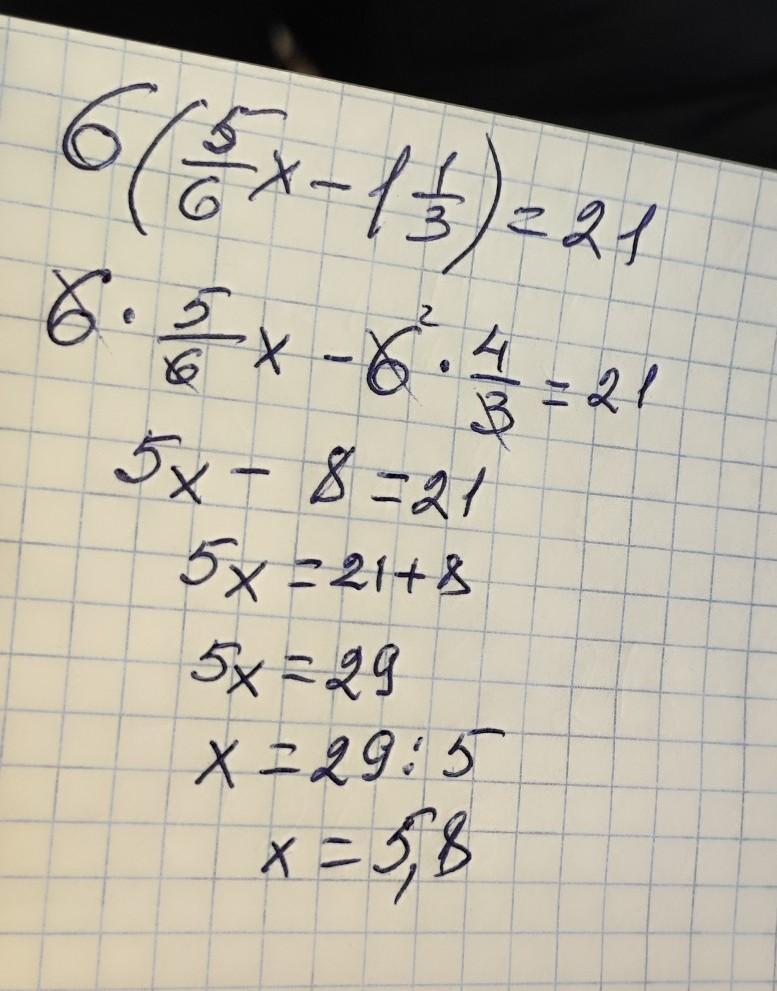 6(5/6 x - 1 1/3) = 21
6 · 5/6 x - 6² · 4/3 = 21
5x - 8 = 21
5x = 21 + 8
5x = 29
x = 29 : 5
x = 5,8